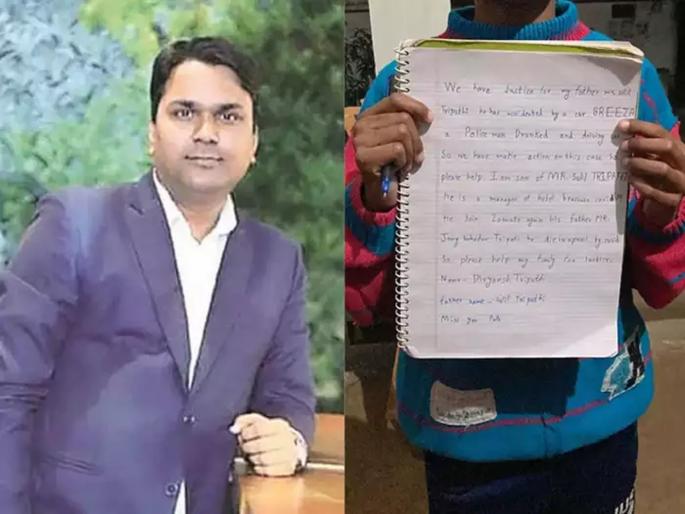 We have Justice for my father MR. Salil
Tripathi he has accidented by a car BREEZA
a Police man Drunked and driving
So we have matic action on this case
please help. I am son of MR. Salil TRIPATHI
He is a manager of hotel
He Join Zomato again his father MR.
Jang bahadur Tripati he die by covid
So please help my family for Justice.
Name - Divyansh Tripathi
father name - Salil Tripathi
Miss you Papa